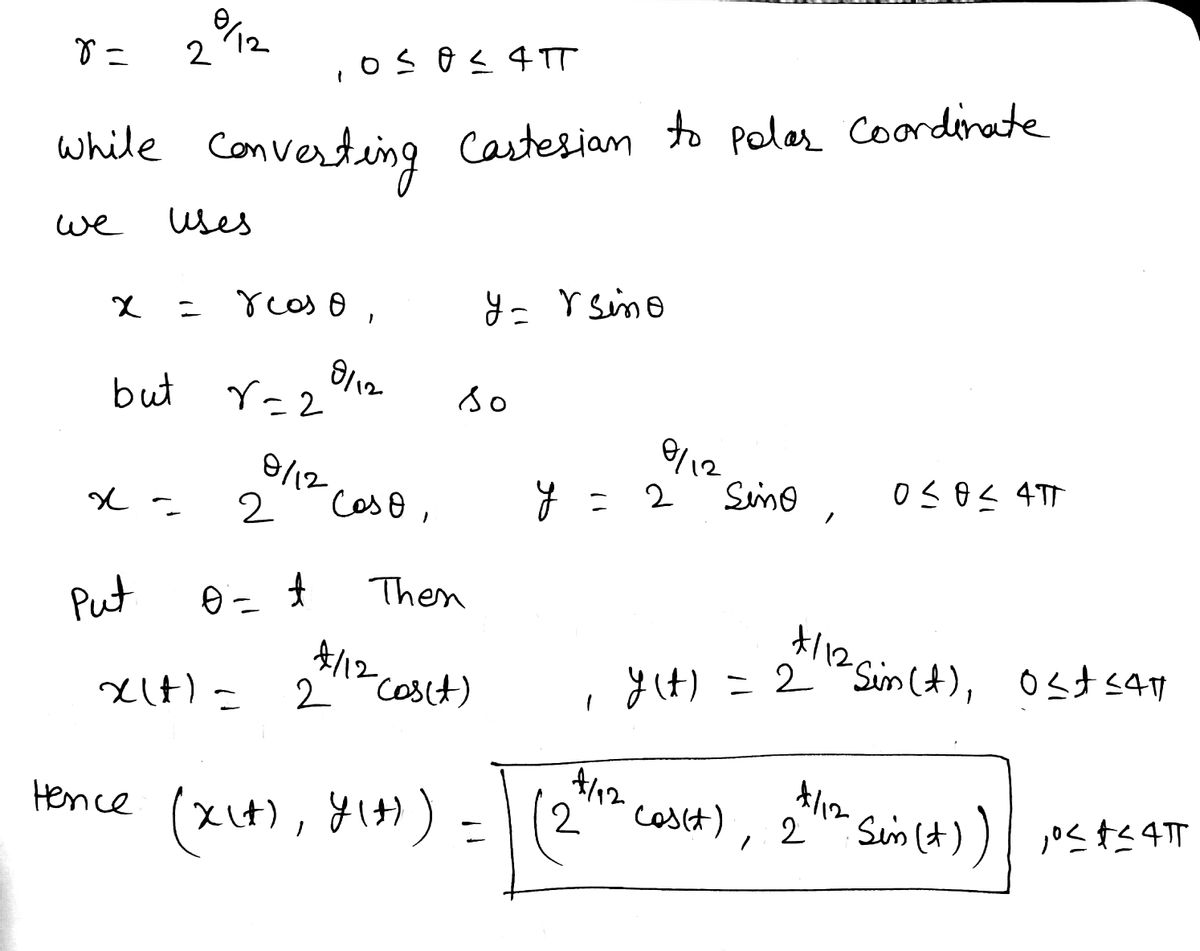 r = 2^θ/12 , 0 ≤ θ ≤ 4π
while converting Cartesian to polar Coordinate
we uses
x = rcosθ, y = rsinθ
but r = 2^θ/12 so
x = 2^θ/12 Cosθ, y = 2^θ/12 Sinθ, 0 ≤ θ ≤ 4π
Put θ = t Then
x(t) = 2^t/12 cos(t) , y(t) = 2^t/12 Sin(t), 0 ≤ t ≤ 4π
Hence (x(t), y(t)) = (2^t/12 cos(t), 2^t/12 Sin(t)) , 0 ≤ t ≤ 4π